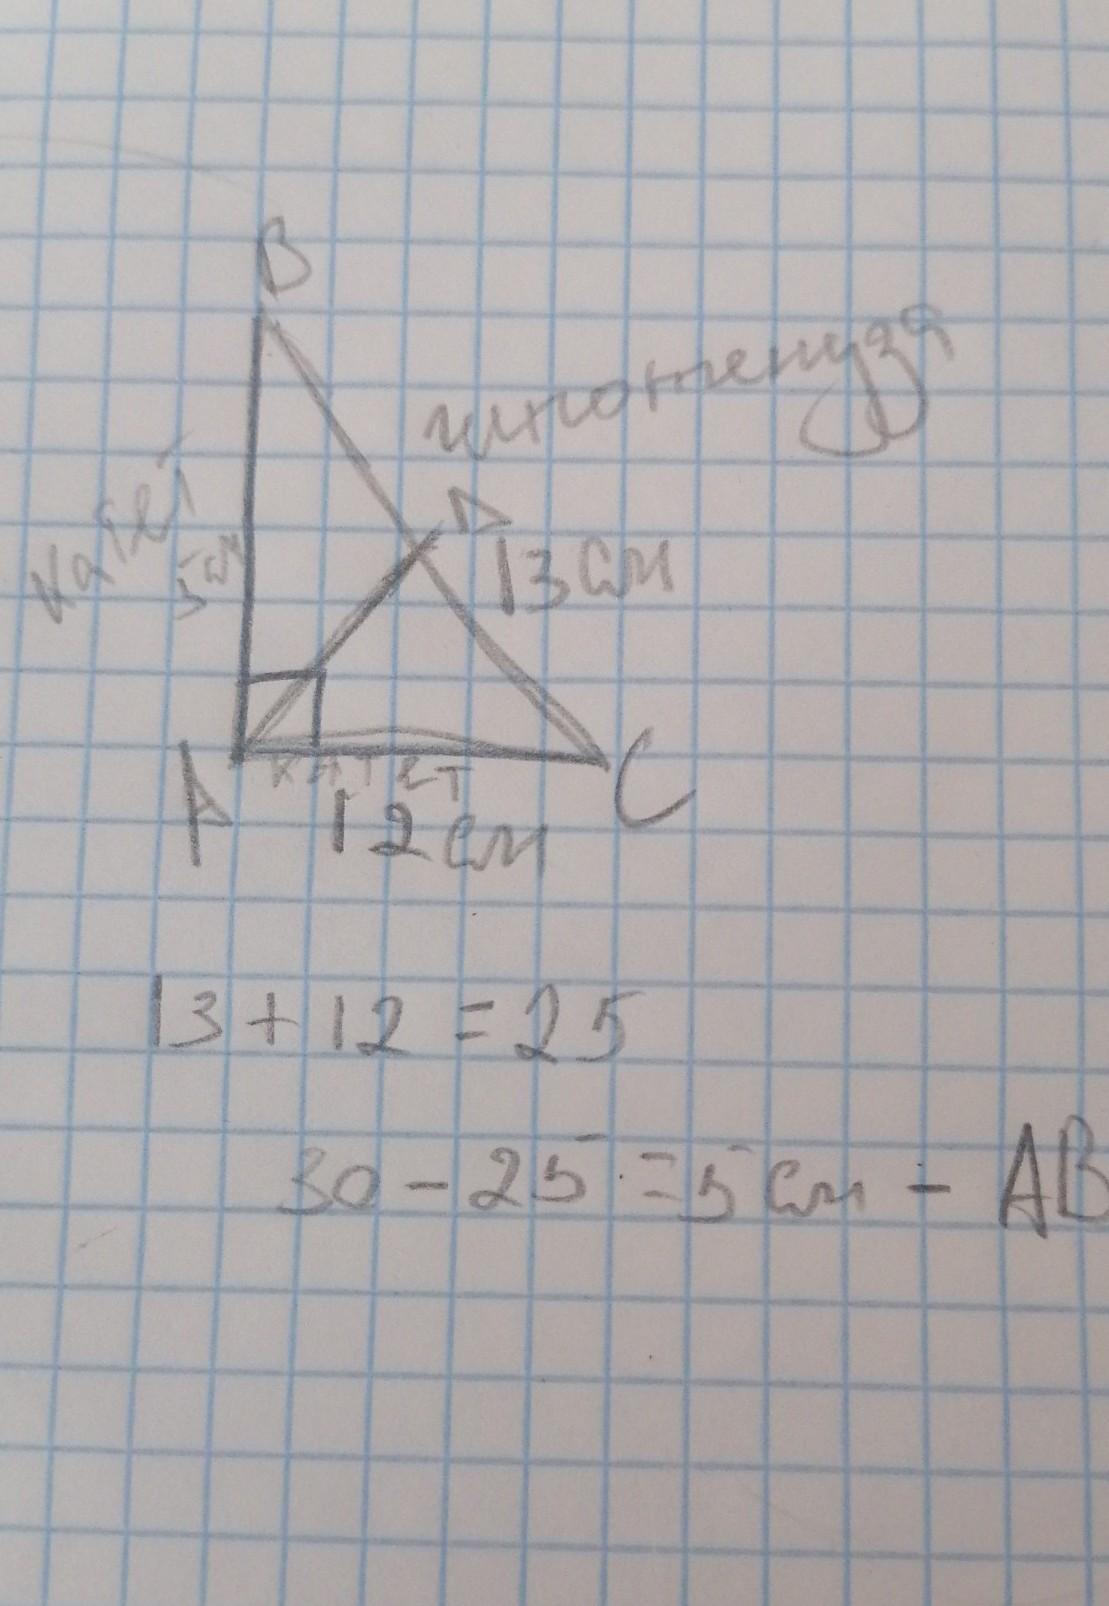 B
гипотенуза
D
катет
5 см
13 см
A
катет
C
12 см
13 + 12 = 25
30 - 25 = 5 см - AB